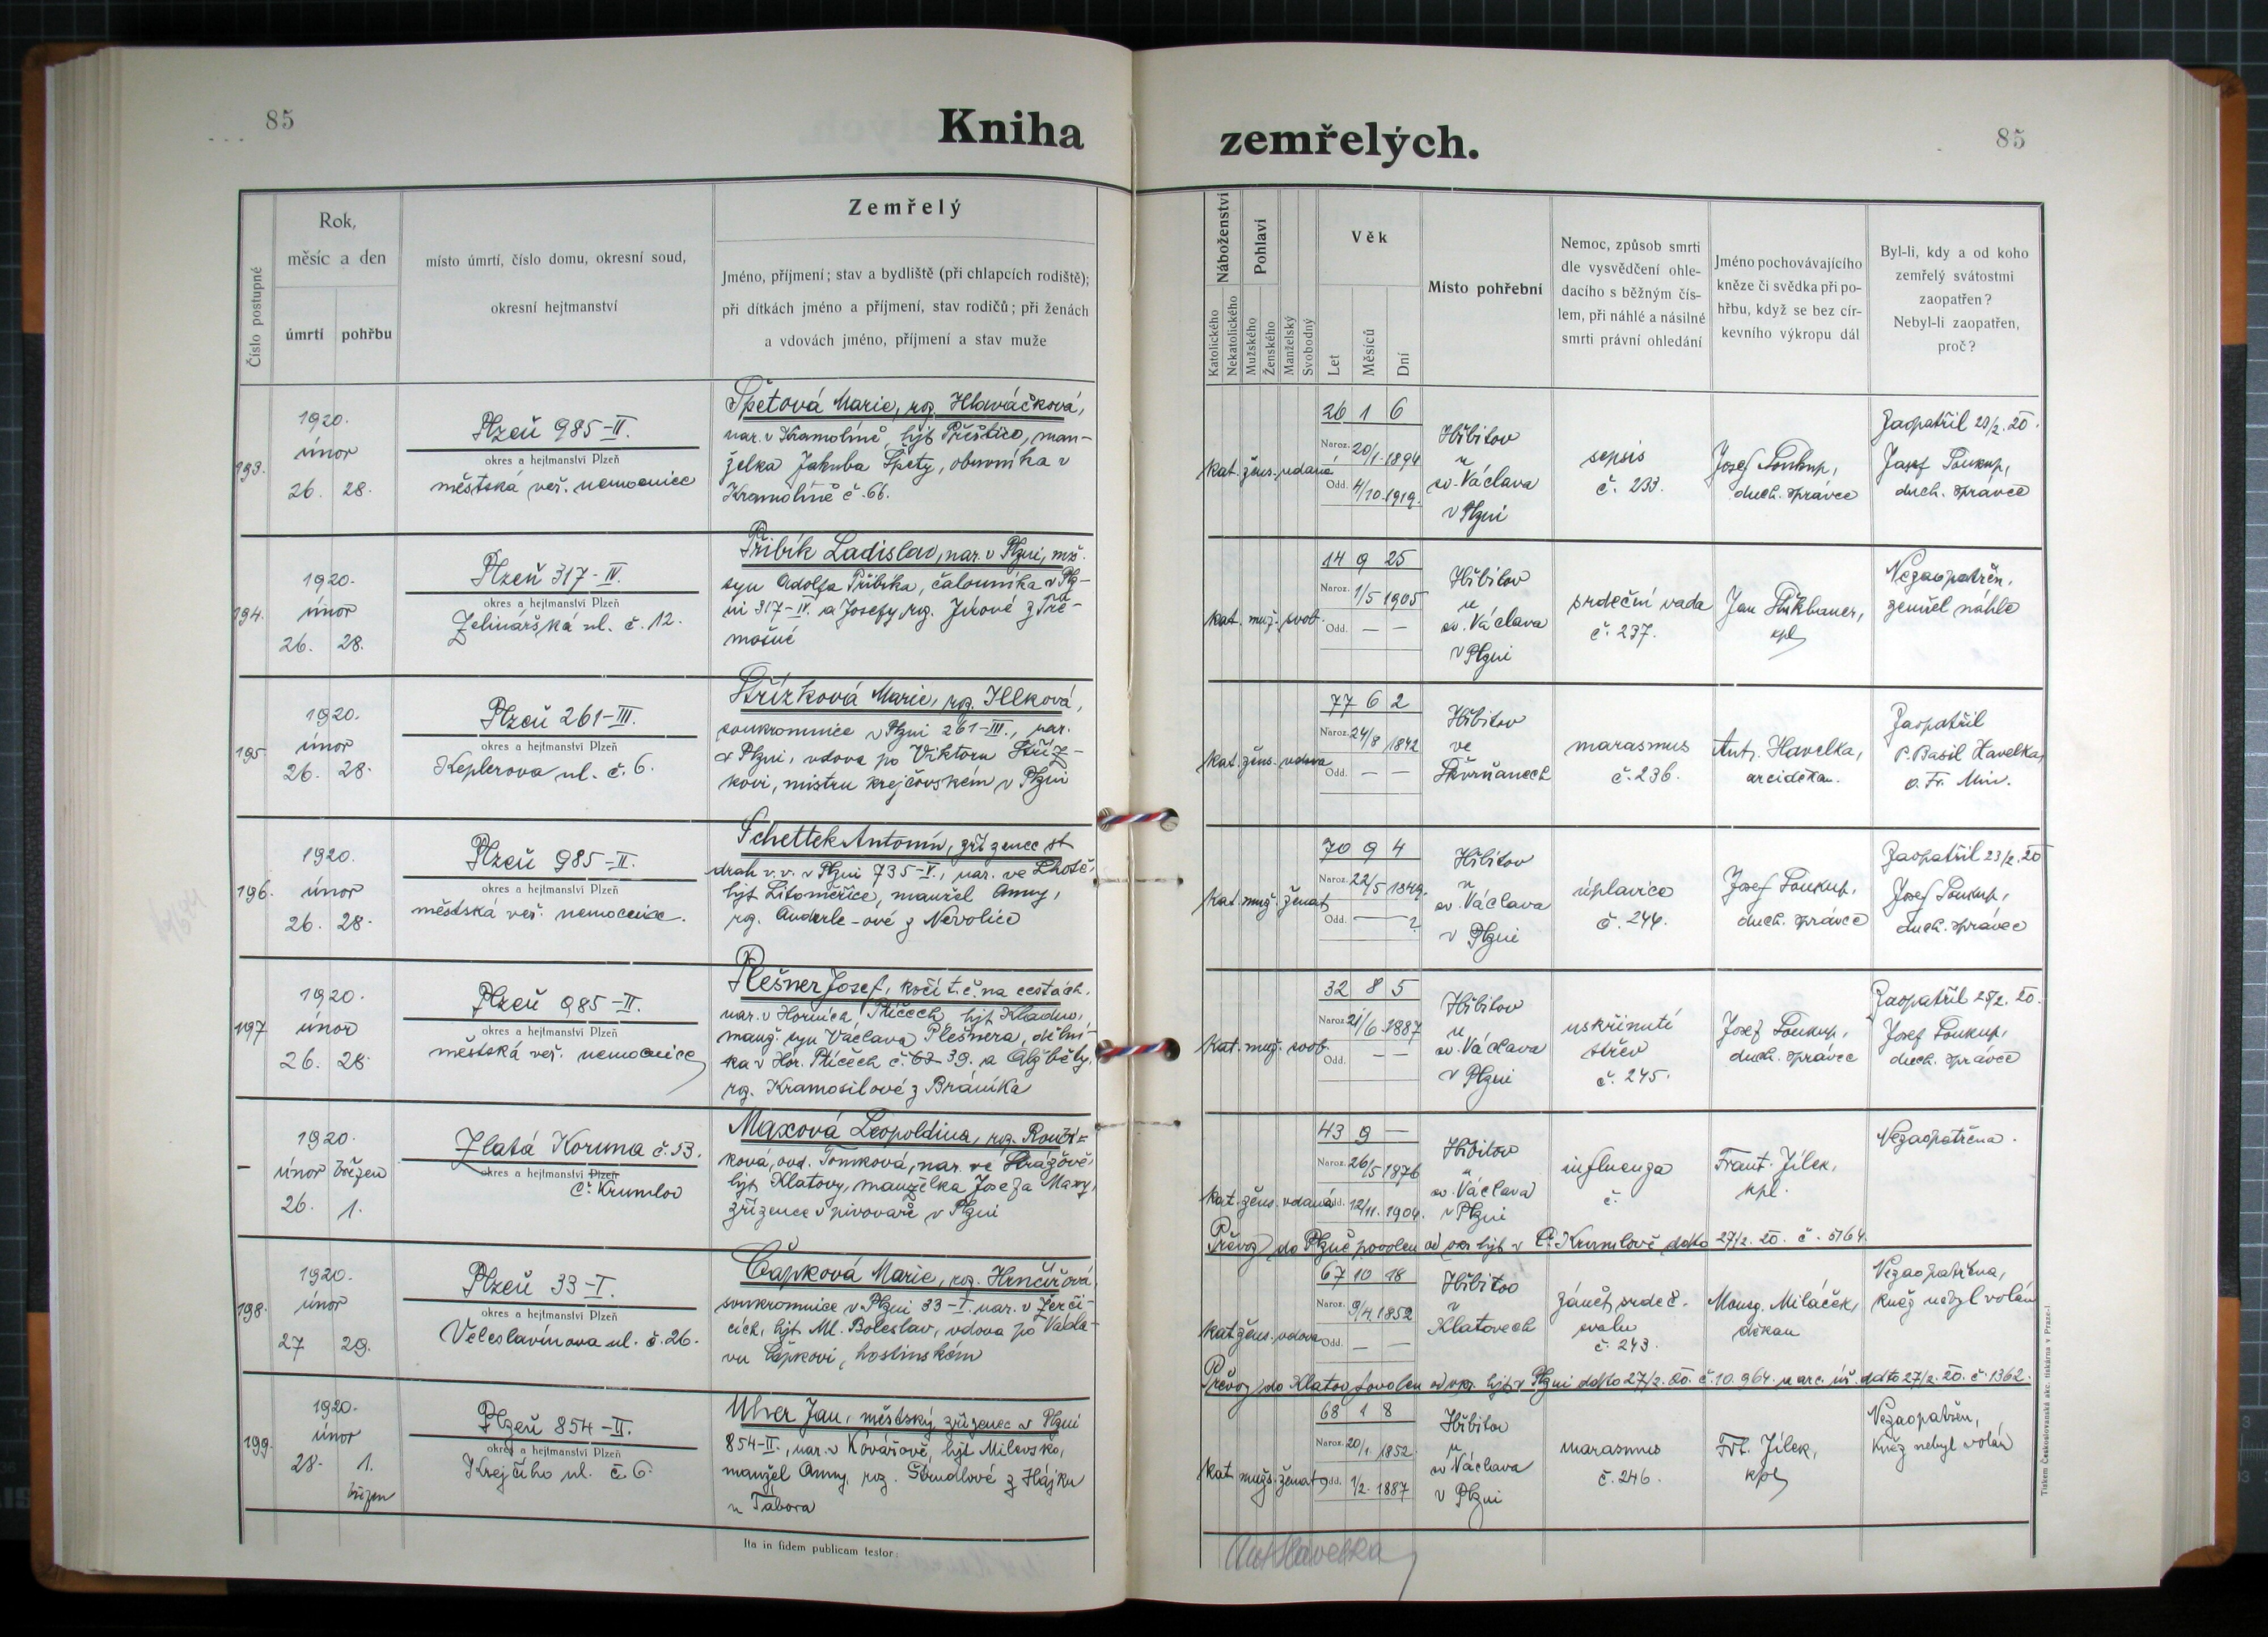 85
Kniha
zemřelých.
85
Číslo postupné
Rok,
měsíc a den
úmrtí
pohřbu
místo úmrtí, číslo domu, okresní soud,
okresní hejtmanství
Zemřelý
Jméno, příjmení; stav a bydliště (při chlapcích rodiště);
při dítkách jméno a příjmení, stav rodičů; při ženách
a vdovách jméno, příjmení a stav muže
Náboženství
Katolického
Nekatolického
Pohlaví
Mužského
Ženského
Manželský
Svobodný
Věk
Let
Měsíců
Dní
Místo pohřební
Nemoc, způsob smrti
dle vysvědčení ohle-
dacího s běžným čís-
lem, při náhlé a násilné
smrti právní ohledání
Jméno pochovávajícího
kněze či svědka při po-
hřbu, když se bez cír-
kevního výkropu dál
Byl-li, kdy a od koho
zemřelý svátostmi
zaopatřen?
Nebyl-li zaopatřen,
proč?
193.
1920.
únor
26. 28.
Plzeň 985-II.
okres a hejtmanství Plzeň
městská veř. nemocnice
Špetová Marie, roz. Hlaváčková,
nar. v Kramolíně, hjt Přeštice, man-
želka Jakuba Špety, obuvníka v
Kramolíně č. 66.
kat. žens. vdaná
26 1 6
Naroz. 20/1. 1894
Odd. 4/10. 1919.
Hřbitov
u
sv. Václava
v Plzni
sepsis
č. 233.
Josef Soukup,
duch. správce
Zaopatřil 20/2. 20.
Josef Soukup,
duch. správce
194.
1920.
únor
26. 28.
Plzeň 317-IV.
okres a hejtmanství Plzeň
Zelinářská ul. č. 12.
Přibík Ladislav, nar. v Plzni, mž.
syn Adolfa Přibíka, čalouníka v Plz-
ni 317-IV. a Josefy, roz. Jírové z Tře-
mošné
kat. muž. svob.
14 9 25
Naroz. 1/5 1905
Odd. — —
Hřbitov
u
sv. Václava
v Plzni
srdeční vada
č. 237.
Jan
kpl
Nezaopatřen,
zemřel náhle
195
1920.
únor
26. 28.
Plzeň 261-III.
okres a hejtmanství Plzeň
Keplerova ul. č. 6.
Střízková Marie, roz. Illková,
soukromnice v Plzni 261-III., nar.
v Plzni, vdova po Viktoru Stříz-
kovi, mistru krejčovském v Plzni
kat. žens. vdova
77 6 2
Naroz. 24/8 1842
Odd. — —
Hřbitov
ve
Skvrňanech
marasmus
č. 236.
Ant. Havelka,
arciděkan.
Zaopatřil
P. Basil Havelka,
o. Fr. Min.
196.
1920.
únor
26. 28.
Plzeň 985-II.
okres a hejtmanství Plzeň
městská veř. nemocnice.
Schettek Antonín, zřízenec st.
drah v. v. v Plzni 735-V., nar. ve Lhotě,
hjt Litoměřice, manžel Anny,
roz. Anderle-ové z Nevolice
kat. muž. ženat
70 9 4
Naroz. 22/5 1849.
Odd. — ?
Hřbitov
u
sv. Václava
v Plzni
úplavice
č. 244.
Josef Soukup,
duch. správce
Zaopatřil 23/2. 20
Josef Soukup,
duch. správce
197
1920.
únor
26. 28.
Plzeň 985-II.
okres a hejtmanství Plzeň
městská veř. nemocnice
Plešner Josef, kočí t. č. na cestách,
nar. v Horních Ptícech, hjt Kladno,
manž. syn Václava Plešnera, dělní-
ka v Hor. Ptícech č. 39. a Alžběty,
roz. Kramosilové z Bráníka
kat. muž. svob.
32 8 5
Naroz. 21/6 1887
Odd. — —
Hřbitov
u
sv. Václava
v Plzni
uskřinutí
střev
č. 245.
Josef Soukup,
duch. správce
Zaopatřil 25/2. 20.
Josef Soukup,
duch. správce
–
1920.
únor březen
26. 1.
Zlatá Koruna č. 53.
okres a hejtmanství Plzeň
Č. Krumlov
Maxová Leopoldina, roz. Roučí-
ková, ovd. Tomková, nar. ve Strážově,
hjt Klatovy, manželka Josefa Maxy,
zřízence v pivovaře v Plzni
kat. žens. vdaná
43 9 —
Naroz. 26/5 1876
Odd. 12/11. 1904.
Hřbitov
u
sv. Václava
v Plzni
influenza
č.
Frant. Jílek,
kpl.
Nezaopatřena.
Převoz do Plzně povolen od okr. hjt v Č. Krumlově ddto 27/2. 20. č. 5764.
198.
1920.
únor
27 29.
Plzeň 33-I.
okres a hejtmanství Plzeň
Veleslavínova ul. č. 26.
Čapková Marie, roz. Hrnčířová,
soukromnice v Plzni 33-I. nar. v Žerči-
cích, hjt Ml. Boleslav, vdova po Václa-
vu Čapkovi, hostinském
kat. žens. vdova
67 10 18
Naroz. 9/4. 1852
Odd. — —
Hřbitov
v
Klatovech
zánět srdeč.
svalu
č. 243.
Monsg. Miláček,
děkan
Nezaopatřena,
kněz nebyl volán
Převoz do Klatov povolen od okr. hjt v Plzni ddto 27/2. 20. č. 10.964. a arc. úř. ddto 27/2. 20. č. 1362.
199.
1920.
únor
28. 1.
březen
Plzeň 854-II.
okres a hejtmanství Plzeň
Krejčího ul. č. 6.
Ulver Jan, městský zřízenec v Plzni
854-II., nar. v Kovářově, hjt Milevsko,
manžel Anny, roz. Šturdlové z Hájku
u Tábora
kat. mužs. ženat
68 1 8
Naroz. 20/1. 1852.
Odd. 1/2. 1887
Hřbitov
u
sv Václava
v Plzni
marasmus
č. 246.
Frt. Jílek,
kpl
Nezaopatřen,
kněz nebyl volán
Ita in fidem publicam testor:
Ant Havelka
Tiskem Československá akc. tiskárna v Praze-I